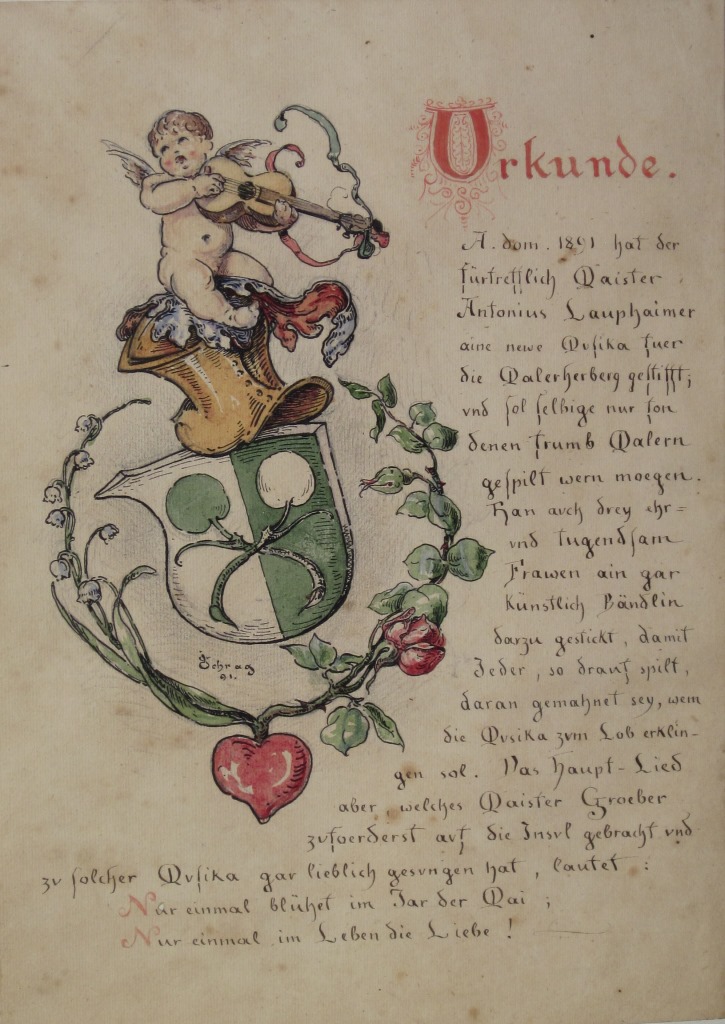 Urkunde.
A. dom. 1891 hat der
fürtrefflich Maister
Antonius Lauphaimer
aine newe Musika fuer
die Malerherberg gestifft;
vnd sol selbige nur fon
denen frumb Malern
gespilt wern moegen.
Han auch drey ehr=
vnd tugendsam
Frawen ain gar
künstlich Bändlin
darzu gestickt, damit
Jeder, so drauf spilt,
daran gemahnet sey, wem
die Musika zum Lob erklin-
gen sol. Das Haupt-Lied
aber, welches Maister Groeber
zufoerderst auf die Insul gebracht vnd
zu solcher Musika gar lieblich gesungen hat, lautet:
Nur einmal blühet im Jar der Mai;
Nur einmal im Leben die Liebe!
JSchrag
91.